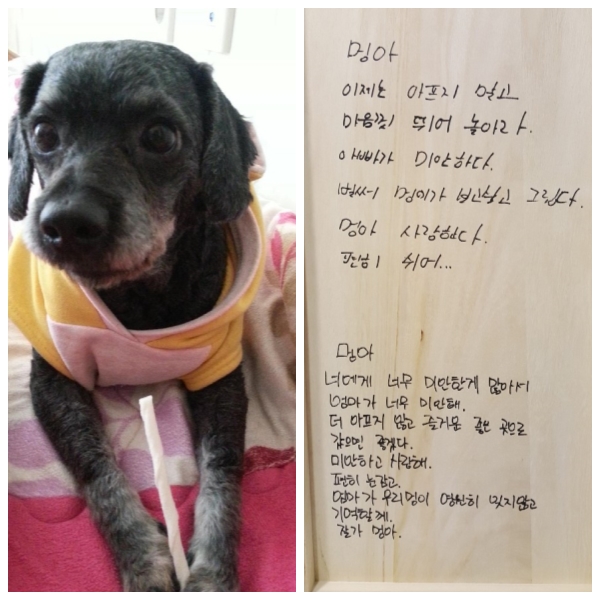 멍아
이제는 아프지 말고
마음껏 뛰어 놀아라.
아빠가 미안하다.
벌써 멍이가 보고싶고 그립다.
멍아 사랑한다.
편히 쉬어...
멍아
너에게 너무 미안한게 많아서
엄마가 너무 미안해.
더 아프지 않고 즐거운 곳으로
갔으면 좋겠다.
미안하고 사랑해.
편히 눈감고.
엄마가 우리멍이 영원히 잊지않고
기억할게.
잘가 멍아.